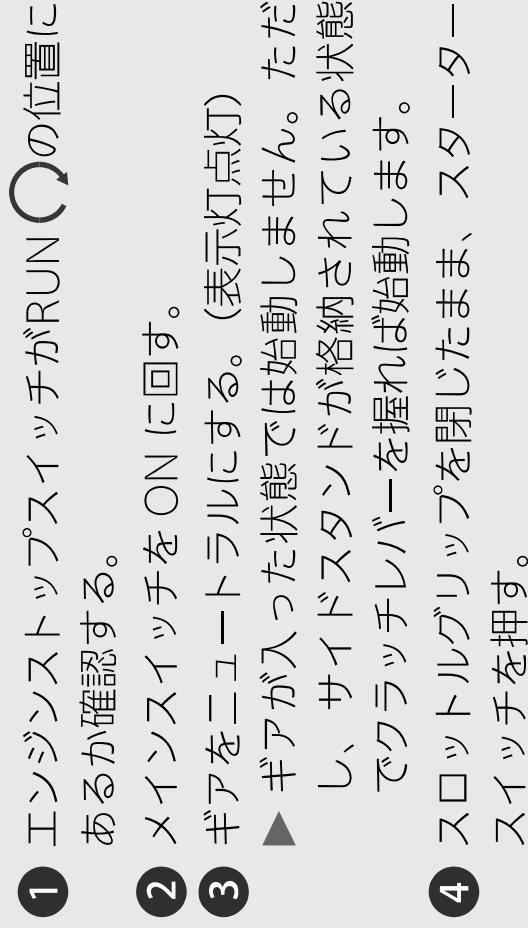 1 エンジンストップスイッチがRUN の位置に
あるか確認する。
2 メインスイッチを ON に回す。
3 ギアをニュートラルにする。（表示灯点灯）
▶ ギアが入った状態では始動しません。ただ
し、サイドスタンドが格納されている状態
でクラッチレバーを握れば始動します。
4 スロットルグリップを閉じたまま、スターター
スイッチを押す。